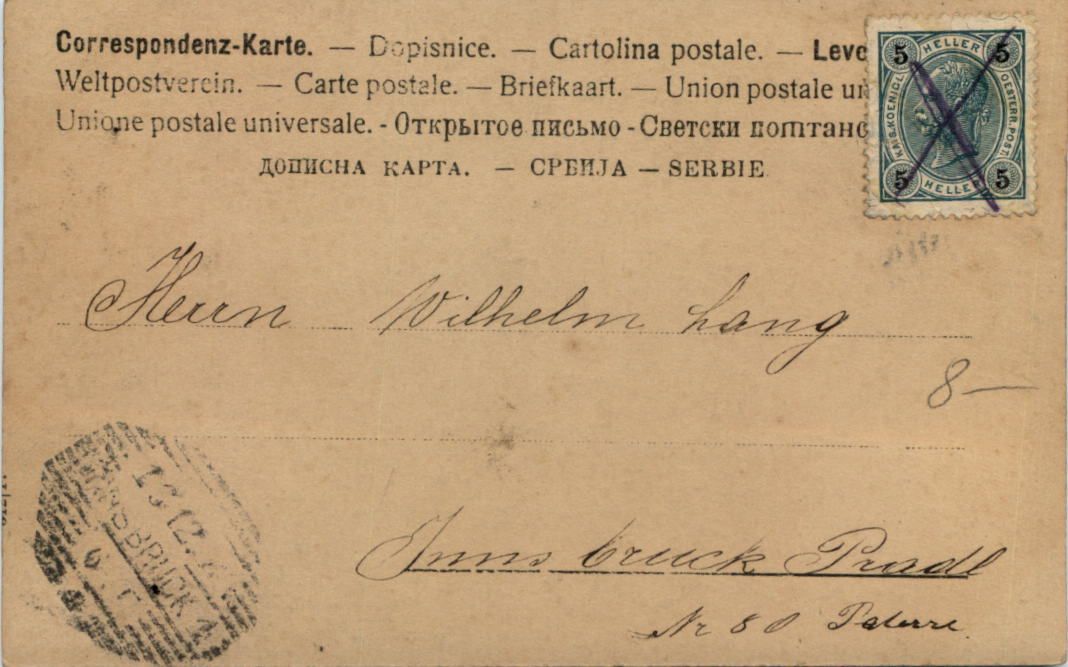 Correspondenz-Karte. — Dopisnice. — Cartolina postale. — Leve
Weltpostverein. — Carte postale. — Briefkaart. — Union postale un
Unione postale universale. - Открытое письмо - Светски поштанс
ДОПИСНА КАРТА. — СРБИЈА — SERBIE
5 HELLER 5
KAIS. KOENIGL. OESTERR. POST.
5 HELLER 5
Herrn Wilhelm Lang
8 —
Innsbruck Pradl
Nr 80 Paterre
INNSBRUCK 1